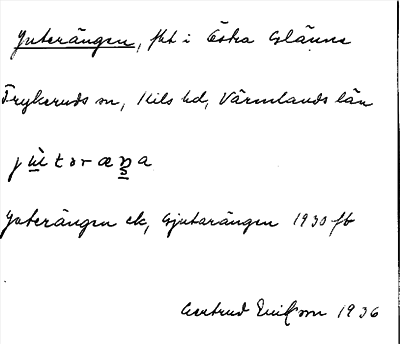 Juterängen, fht i Östra Glänne
Frykeruds sn, Kils hd, Värmlands län
Juterängen ek, Gjutarängen 1930 jb
Gertrud Ericsson 1936